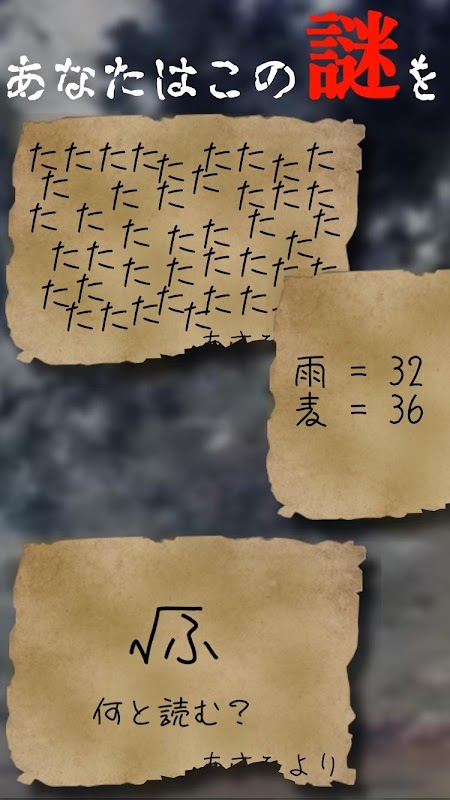 あなたはこの謎を
たたたたたたたたた
たたたたたたた
たたたた
たたたた
たたたたたたたた
たたたたたた
たたた
雨 = 32
麦 = 36
√ふ
何と読む？
より